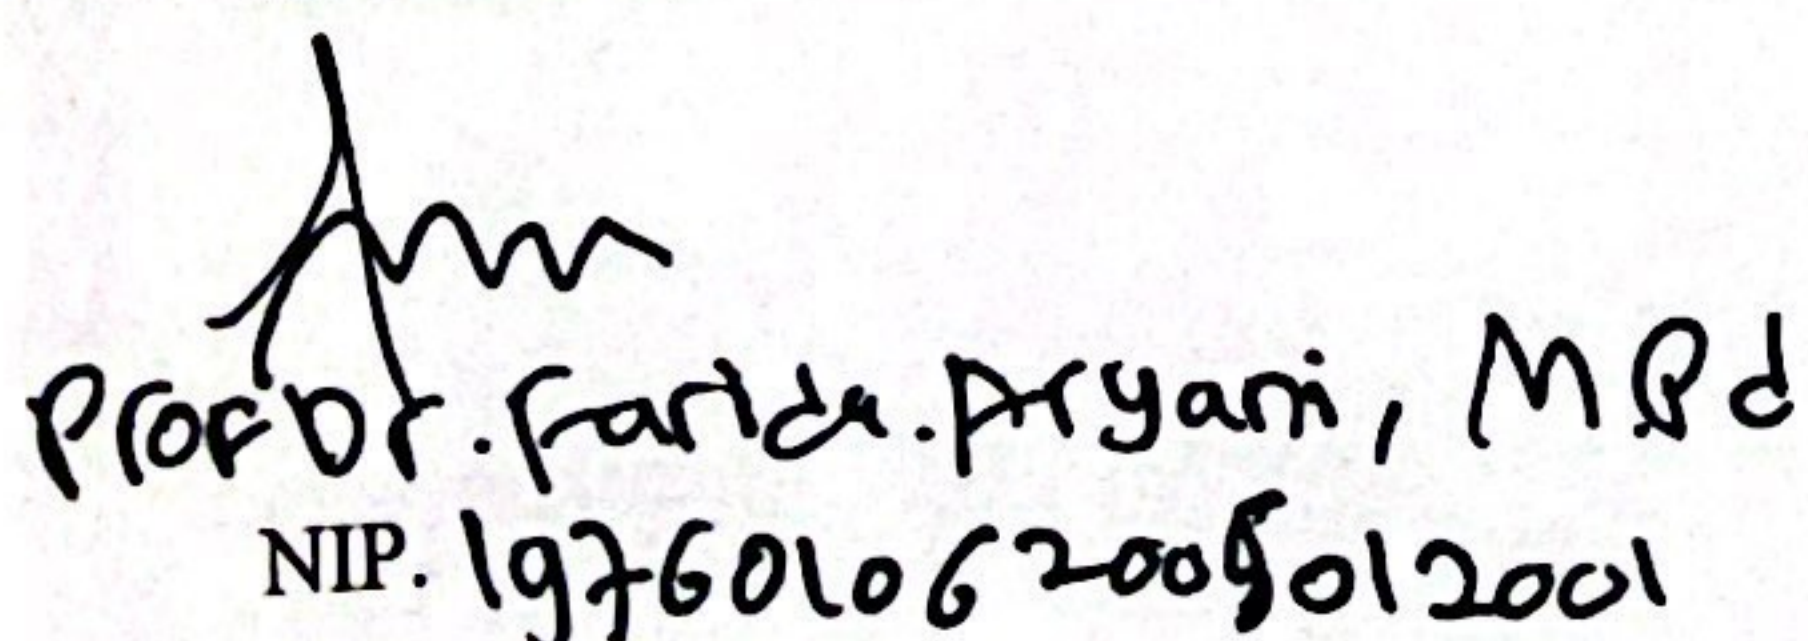 Prof Dr. Farida. Aryani, MPd
NIP. 197601062005012001